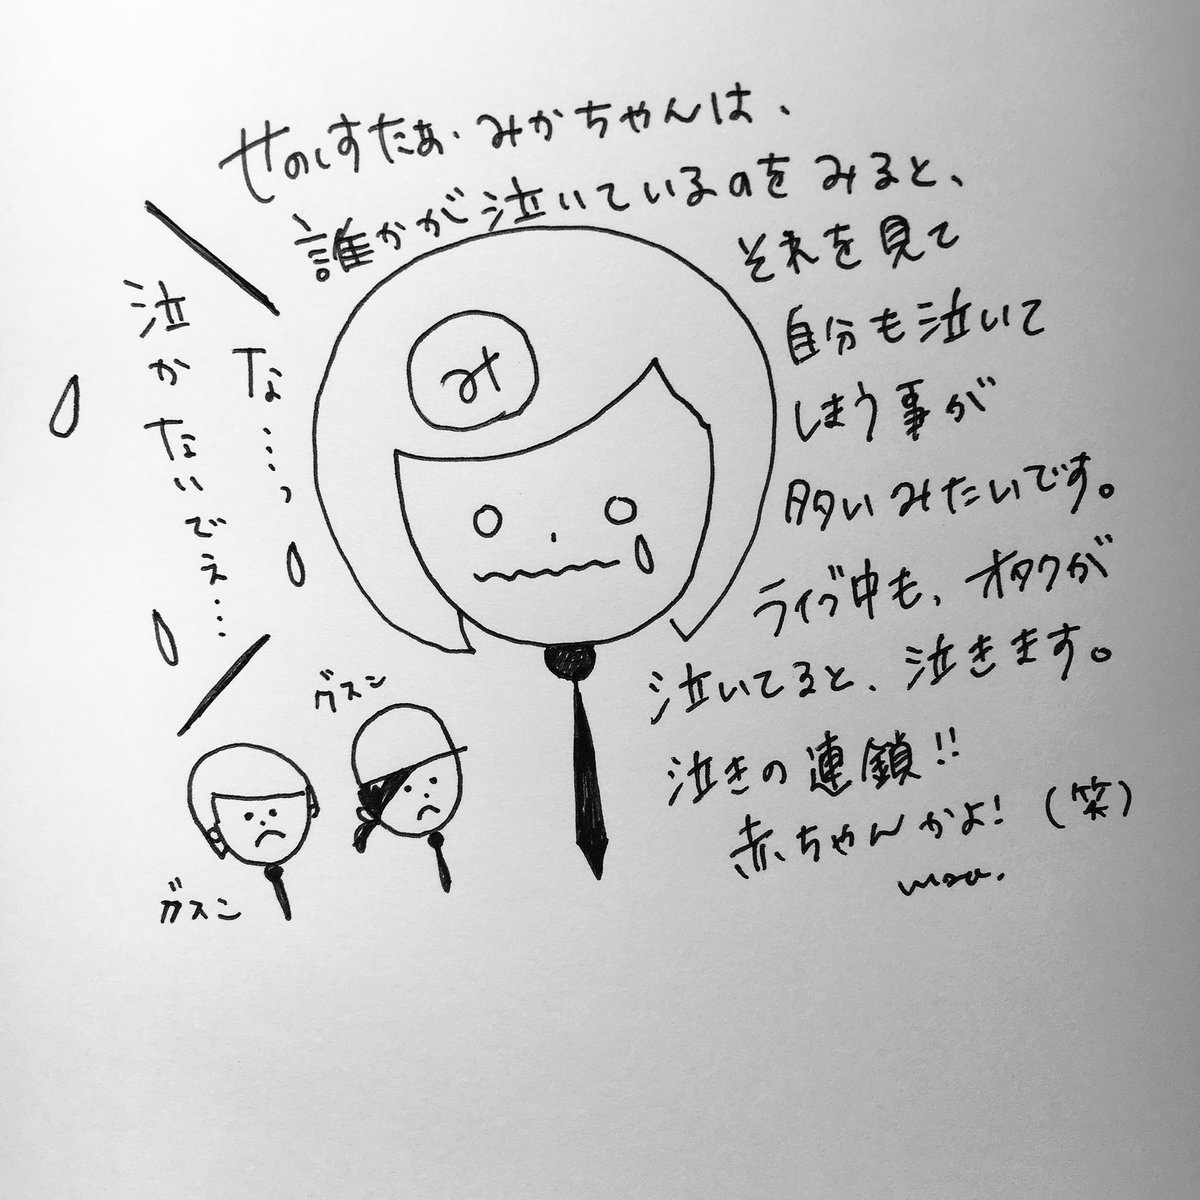 せのしすたぁ・みかちゃんは、
誰かが泣いているのをみると、
それを見て
自分も泣いて
しまう事が
多いみたいです。
ライブ中も、オタクが
泣いてると、泣きます。
泣きの連鎖!!
赤ちゃんかよ!(笑)
み
な……っ
泣かないでぇ……
グスン
グスン